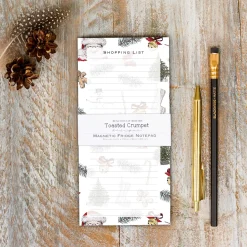 Shopping List
Toasted Crumpet
Magnetic Fridge Notepad